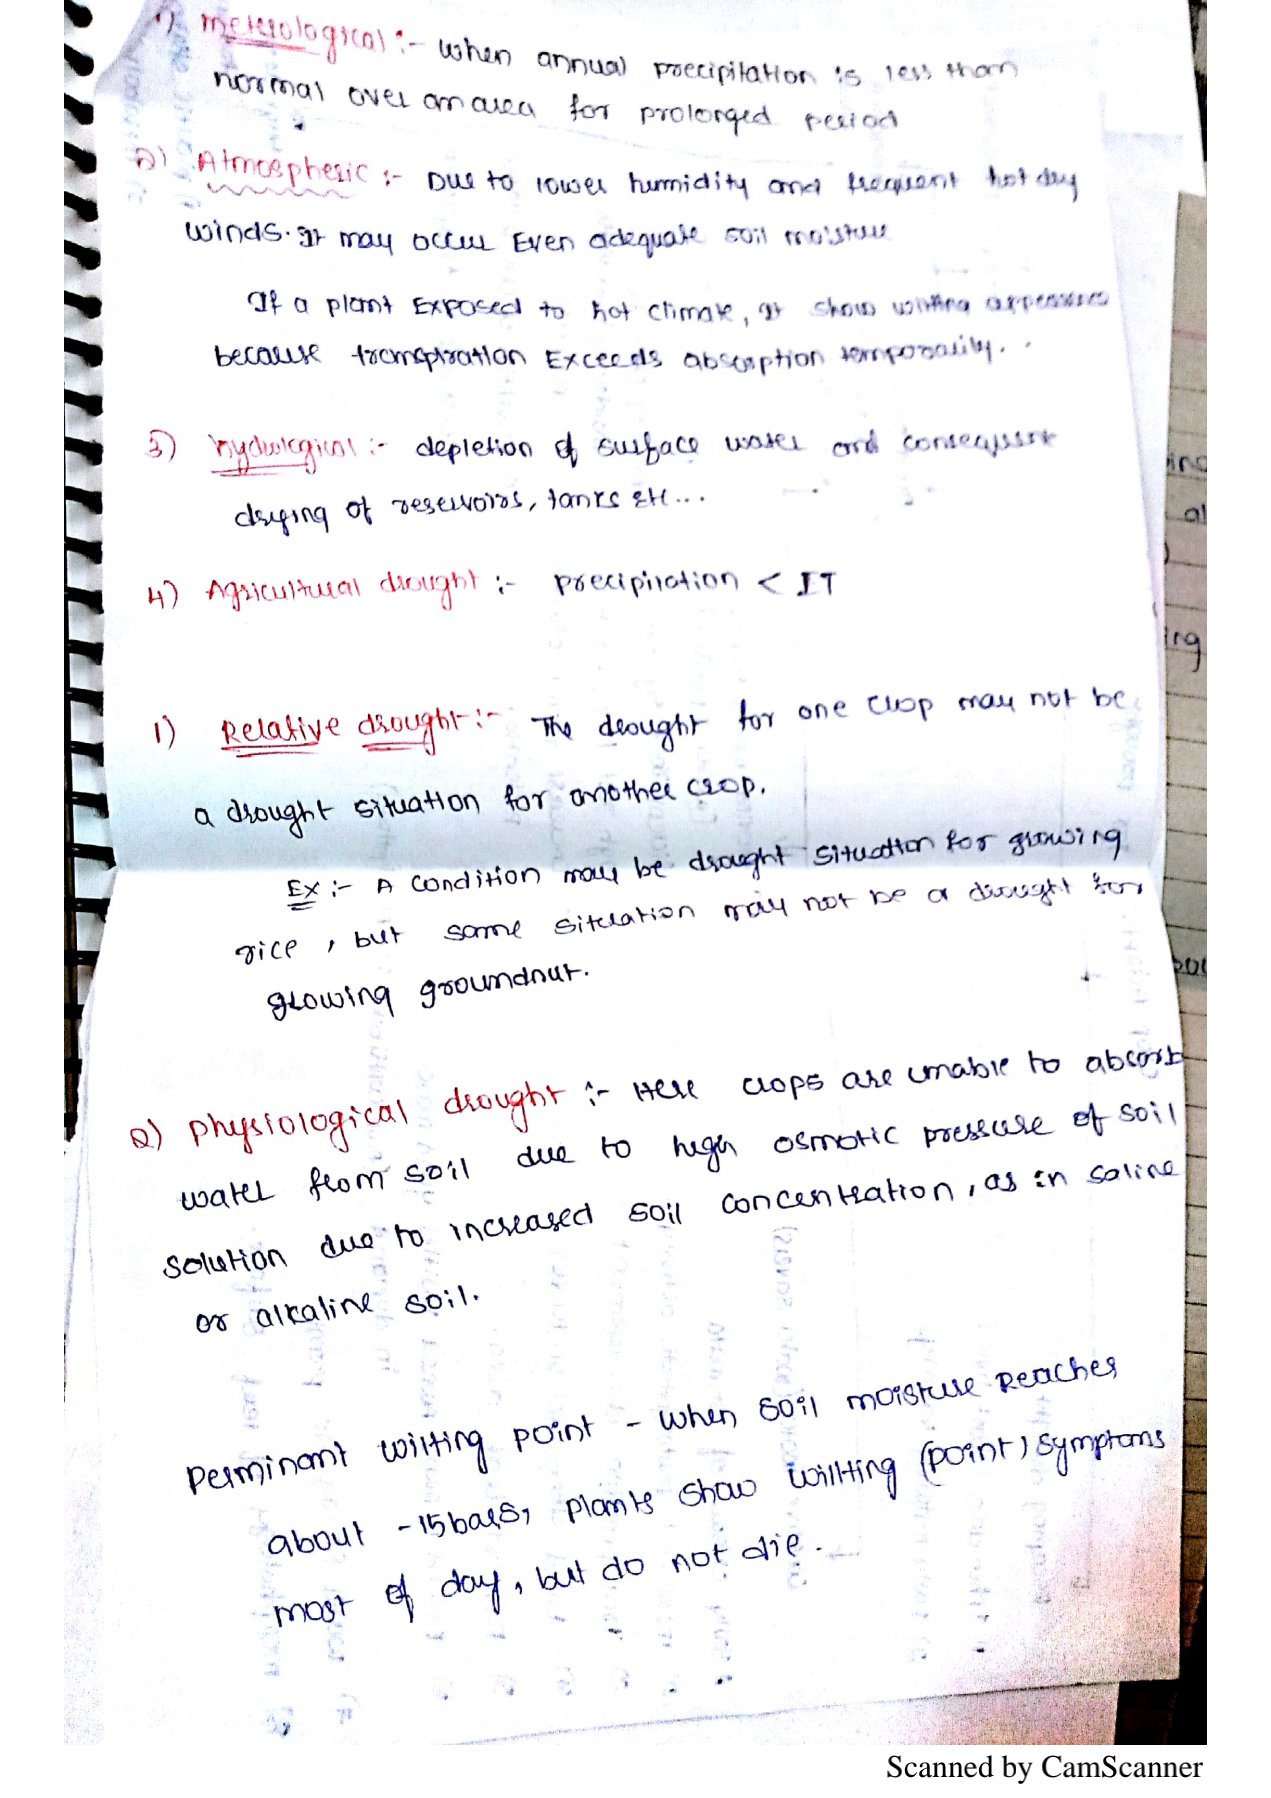 1) Meterological :- when annual precipitation is less than
normal over an area for prolonged period
2) Atmospheric :- Due to lower humidity and frequent hot dry
winds. It may occur Even adequate soil moisture
If a plant Exposed to hot climate, It show wilting
because transpiration Exceeds absorption temporarily.
3) hydrological :- depletion of surface water and consequent
drying of reservoirs, tanks etc...
4) Agricultural drought :- Precipitation < IT
1) Relative drought :- The drought for one crop may not be
a drought situation for another crop.
Ex :- A condition may be drought situation for growing
rice, but same situation may not be a drought for
growing groundnut.
2) physiological drought :- Here crops are unable to absorb
water from soil due to high osmotic pressure of soil
solution due to increased soil concentration, as in saline
or alkaline soil.
Perminant wilting point - when soil moisture Reaches
about -15bars, plants show willting (point) symptoms
most of day, but do not die.
Scanned by CamScanner